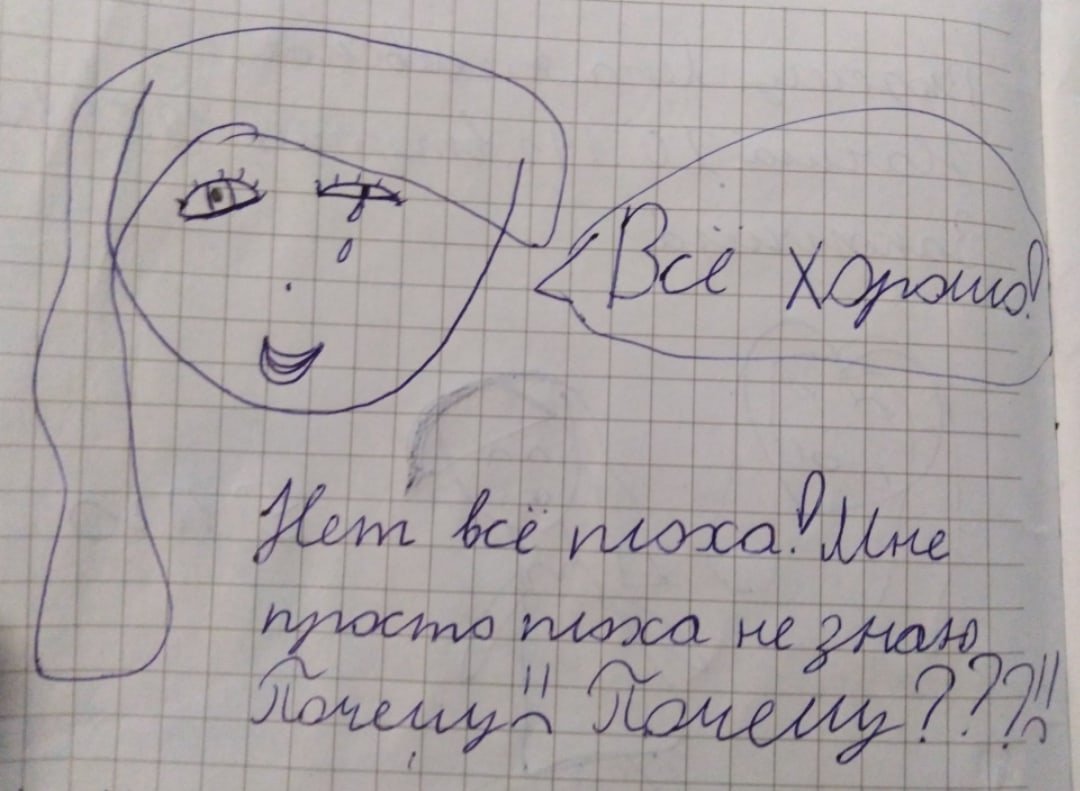 Всё хорошо!
Нет всё плоха! Мне
просто плоха не знаю
Почему!! Почему???!!